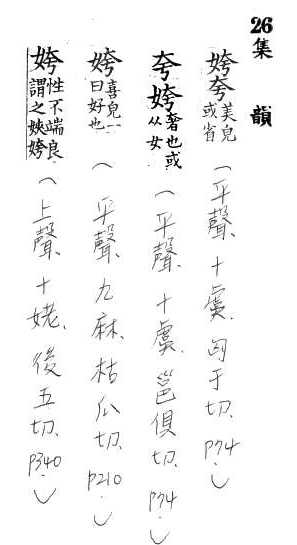 26集 韻
姱夸美皃或省(平聲、十虞、匈于切、P74.)
夸姱奢也或从女(平聲、十虞、邕俱切、P74.)
姱喜皃一曰好也(平聲、九麻、枯瓜切、P210.)
姱性不端良謂之㛍姱(上聲、十姥、後五切、P340.)